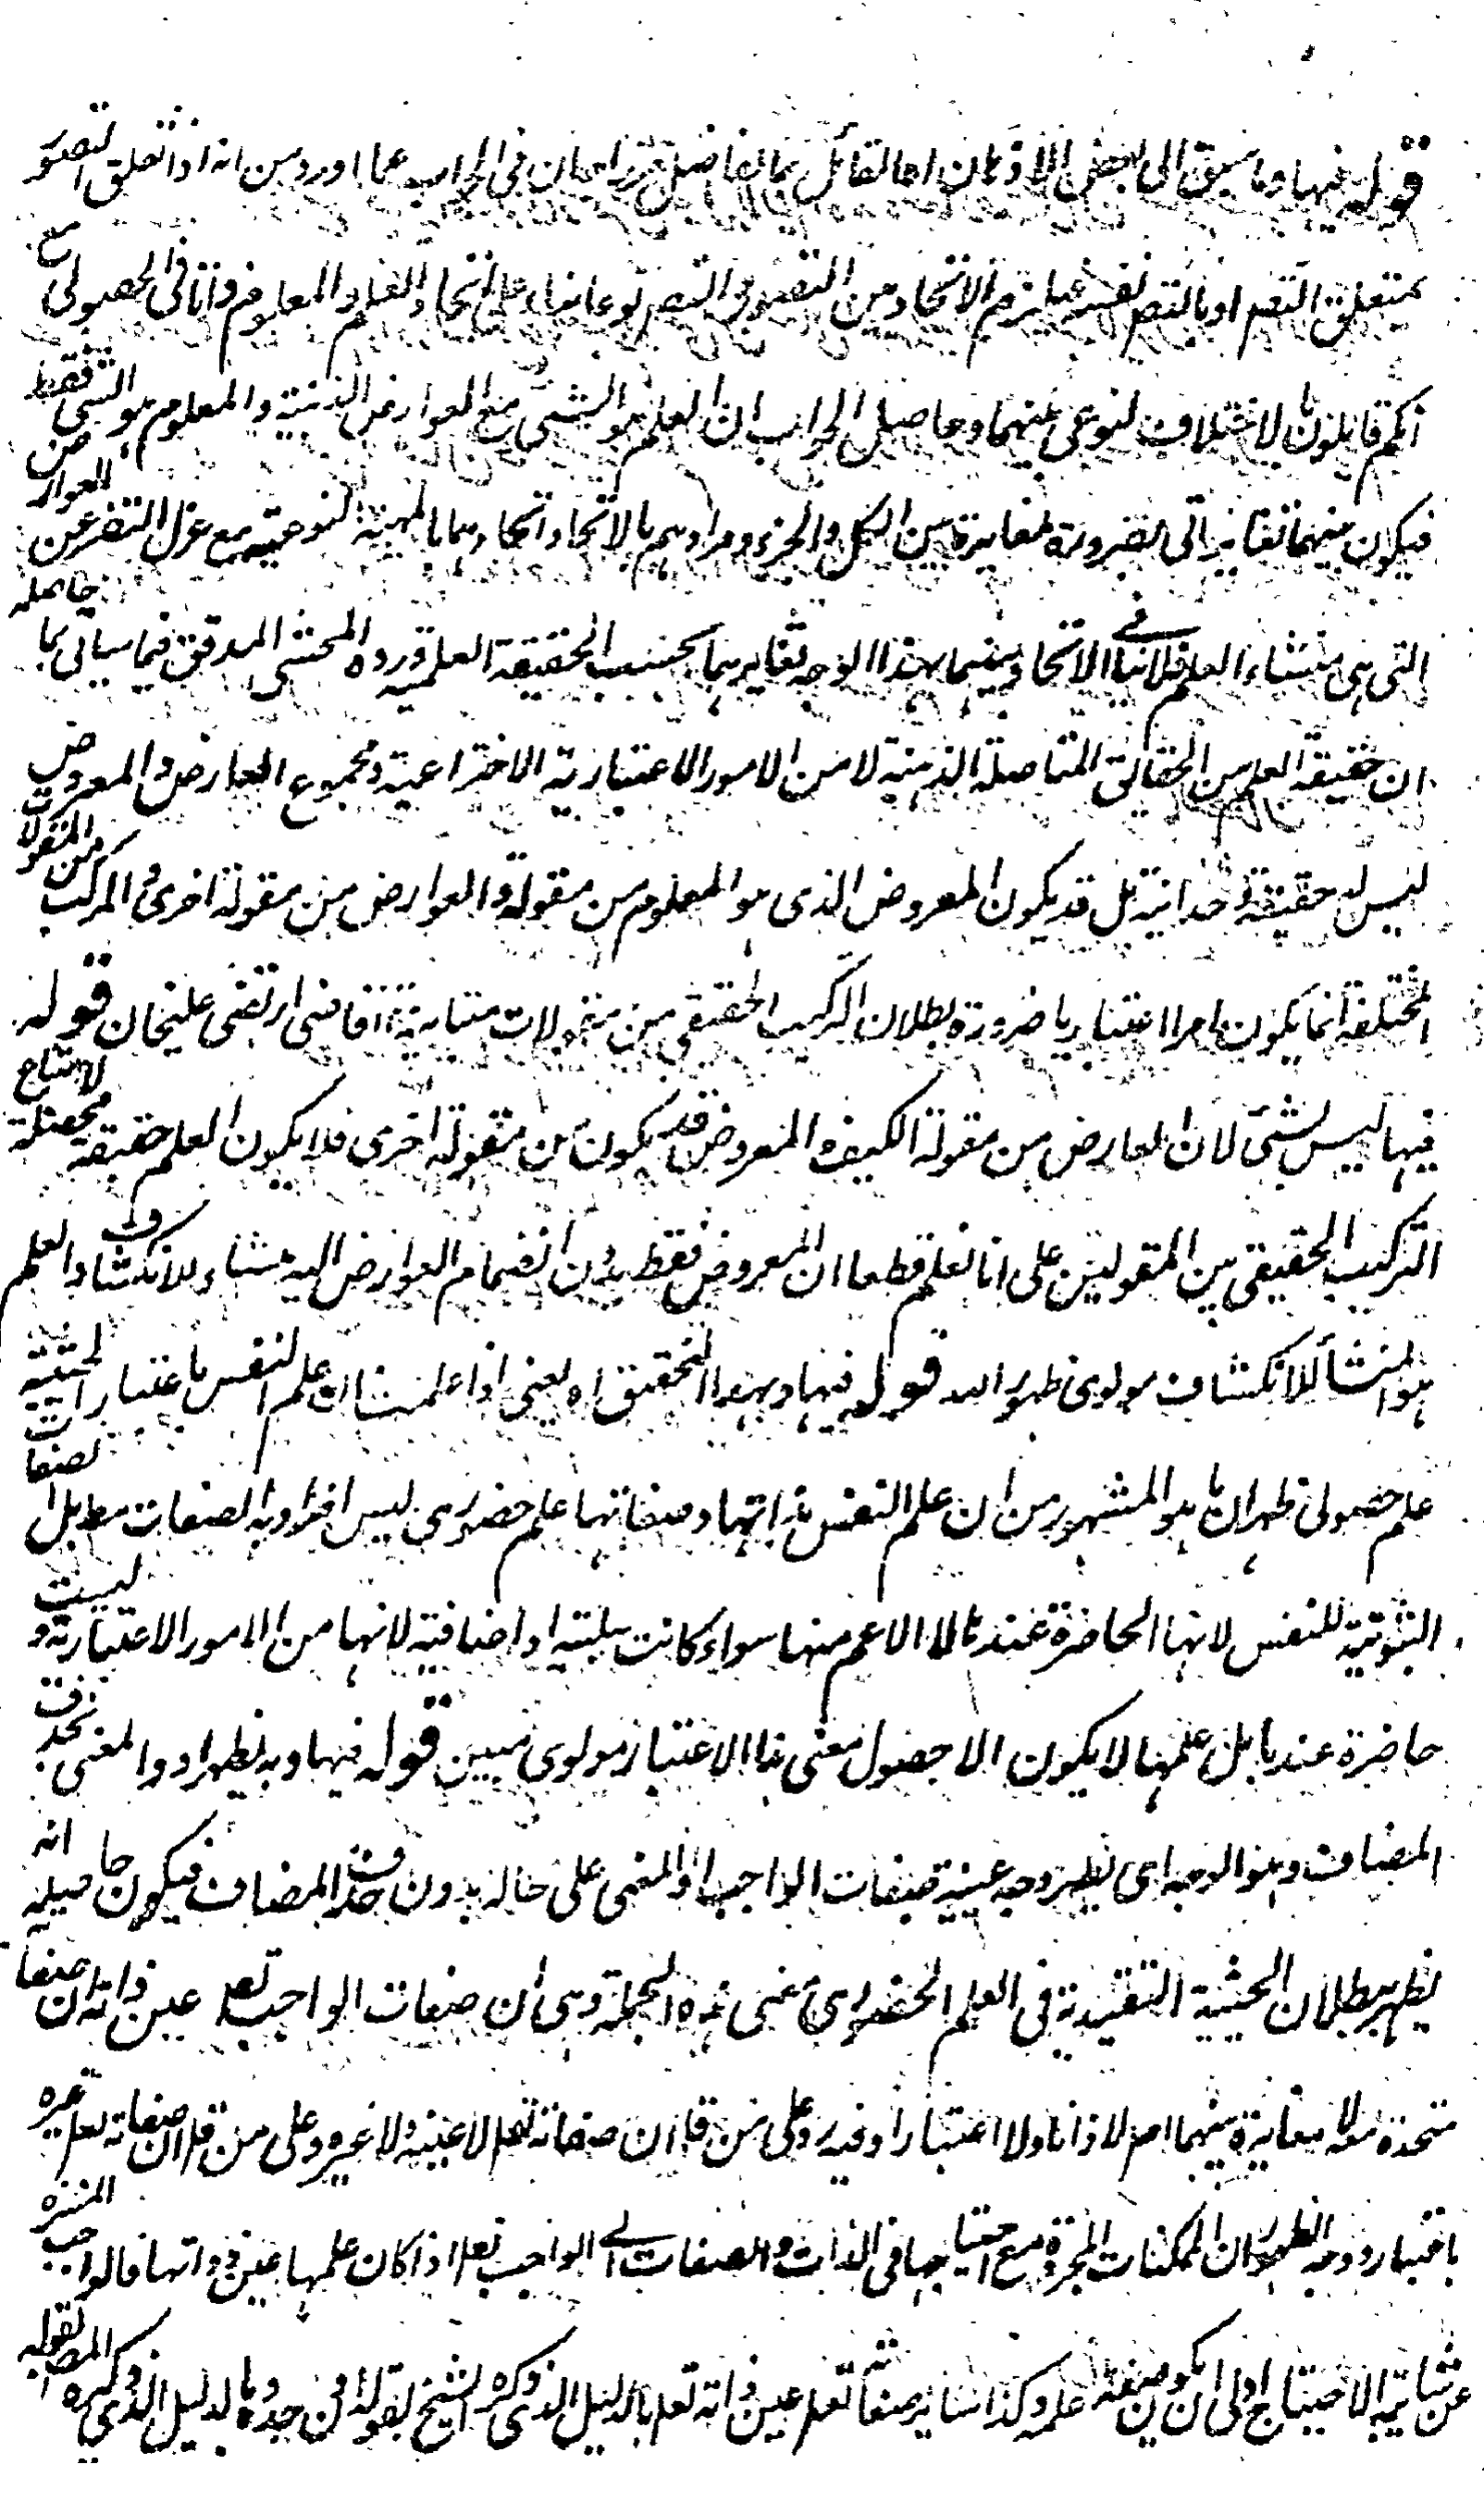 قوله فيها وما سبق الى بعض الاذهان اه القائل بما لفاضل ميرزا جان فى الجواب عما اورد من انه اذا تعلق التصور
بمتعلق التصديق او بالتصديق نفسه فيلزم الاتحاد بين التصور والتصديق نوعا بناء على اتحاد العلم والمعلوم ذاتا فى الحصولى مع
انكم قايلون بالاختلاف النوعى بينهما وحاصل الجواب ان العلم هو الشئ مع العوارض الذهنية والمعلوم هو الشئ فقط
فيكون بينهما تغاير ذاتى لضرورة المغايرة بين الكل والجزء ومرادهم بالاتحاد اتحادهما بالمهية النوعية مع عزل النظر عن العوارض
التى هى منشاء العلم فلا ينافى الاتحاد بينهما بهذا الوجه تغايرهما بحسب الحقيقة العلمية ورده المحشى المدقق فيما سياتى بما حاصله
ان حقيقة العلم من الحقائق المتاصلة الذهنية لا من الامور الاعتبارية الاختراعية ومجموع العارض والمعروض
ليس له حقيقة وحدانية بل قد يكون المعروض الذى هو المعلوم من مقولة والعوارض من مقولة اخرى والمركب من المقولات
المختلفة انما يكون امرا اعتباريا ضرورة بطلان التركيب الحقيقى من مقولات متباينة قاضى ارتضى عليخان قوله
فيها ليس بشئ لان العارض من مقولة الكيف والمعروض قد يكون من مقولة اخرى فلا يكون العلم حقيقة محصلة لامتناع
التركيب الحقيقى بين المقولتين على انا نعلم قطعا ان المعروض فقط بدون انضمام العوارض اليه منشاء للانكشاف والعلم
هو المنشأ للانكشاف مولوى ظهور الله قوله فيها وبهذا التحقيق اه يعنى اذا علمت ان علم النفس باعتبار الحيثية
علم حصولى ظهر ان ما هو المشهور من ان علم النفس بذاتها وصفاتها علم حضورى ليس افراد به الصفات مطلقا بل الصفات
الثبوتية للنفس لانها الحاضرة عندها لا الاعم منها سواء كانت سلبية او اضافية لانها من الامور الاعتبارية وليست
حاضرة عندها بل علمها لا يكون الا حصول معنى هذا الاعتبار مولوى مبين قوله فيها وبه يظهر اه والمعنى بحذف
المضاف وهو الوجه اى يظهر وجه عينية صفات الواجب او المعنى على حاله بدون حذف المضاف فيكون حاصله انه
يظهر ببطلان الحيثية التقييدية فى العلم الحضورى معنى هذه الجملة وهى ان صفات الواجب تعالى عين ذاته ان صفاته
متحدة معه لا مغايرة بينهما اصلا لا ذاتا ولا اعتبارا وفيه رد على من قال ان صفاته تعالى لا عينه ولا غيره وعلى من قال ان صفاته تعالى غيره
باعتبار ووجه الظهور ان الممكنات المجردة مع احتياجها فى الذات والصفات الى الواجب تعالى اذا كان علمها عين ذواتها فالواجب المنزه
عن شائبة الاحتياج اولى ان يكون صفة علمه وكذا سائر صفاته تعالى عين ذاته تعالى بالدليل الذى ذكره الشيخ بقوله ومن حدوها بالدليل الذى ذكره المص بقوله